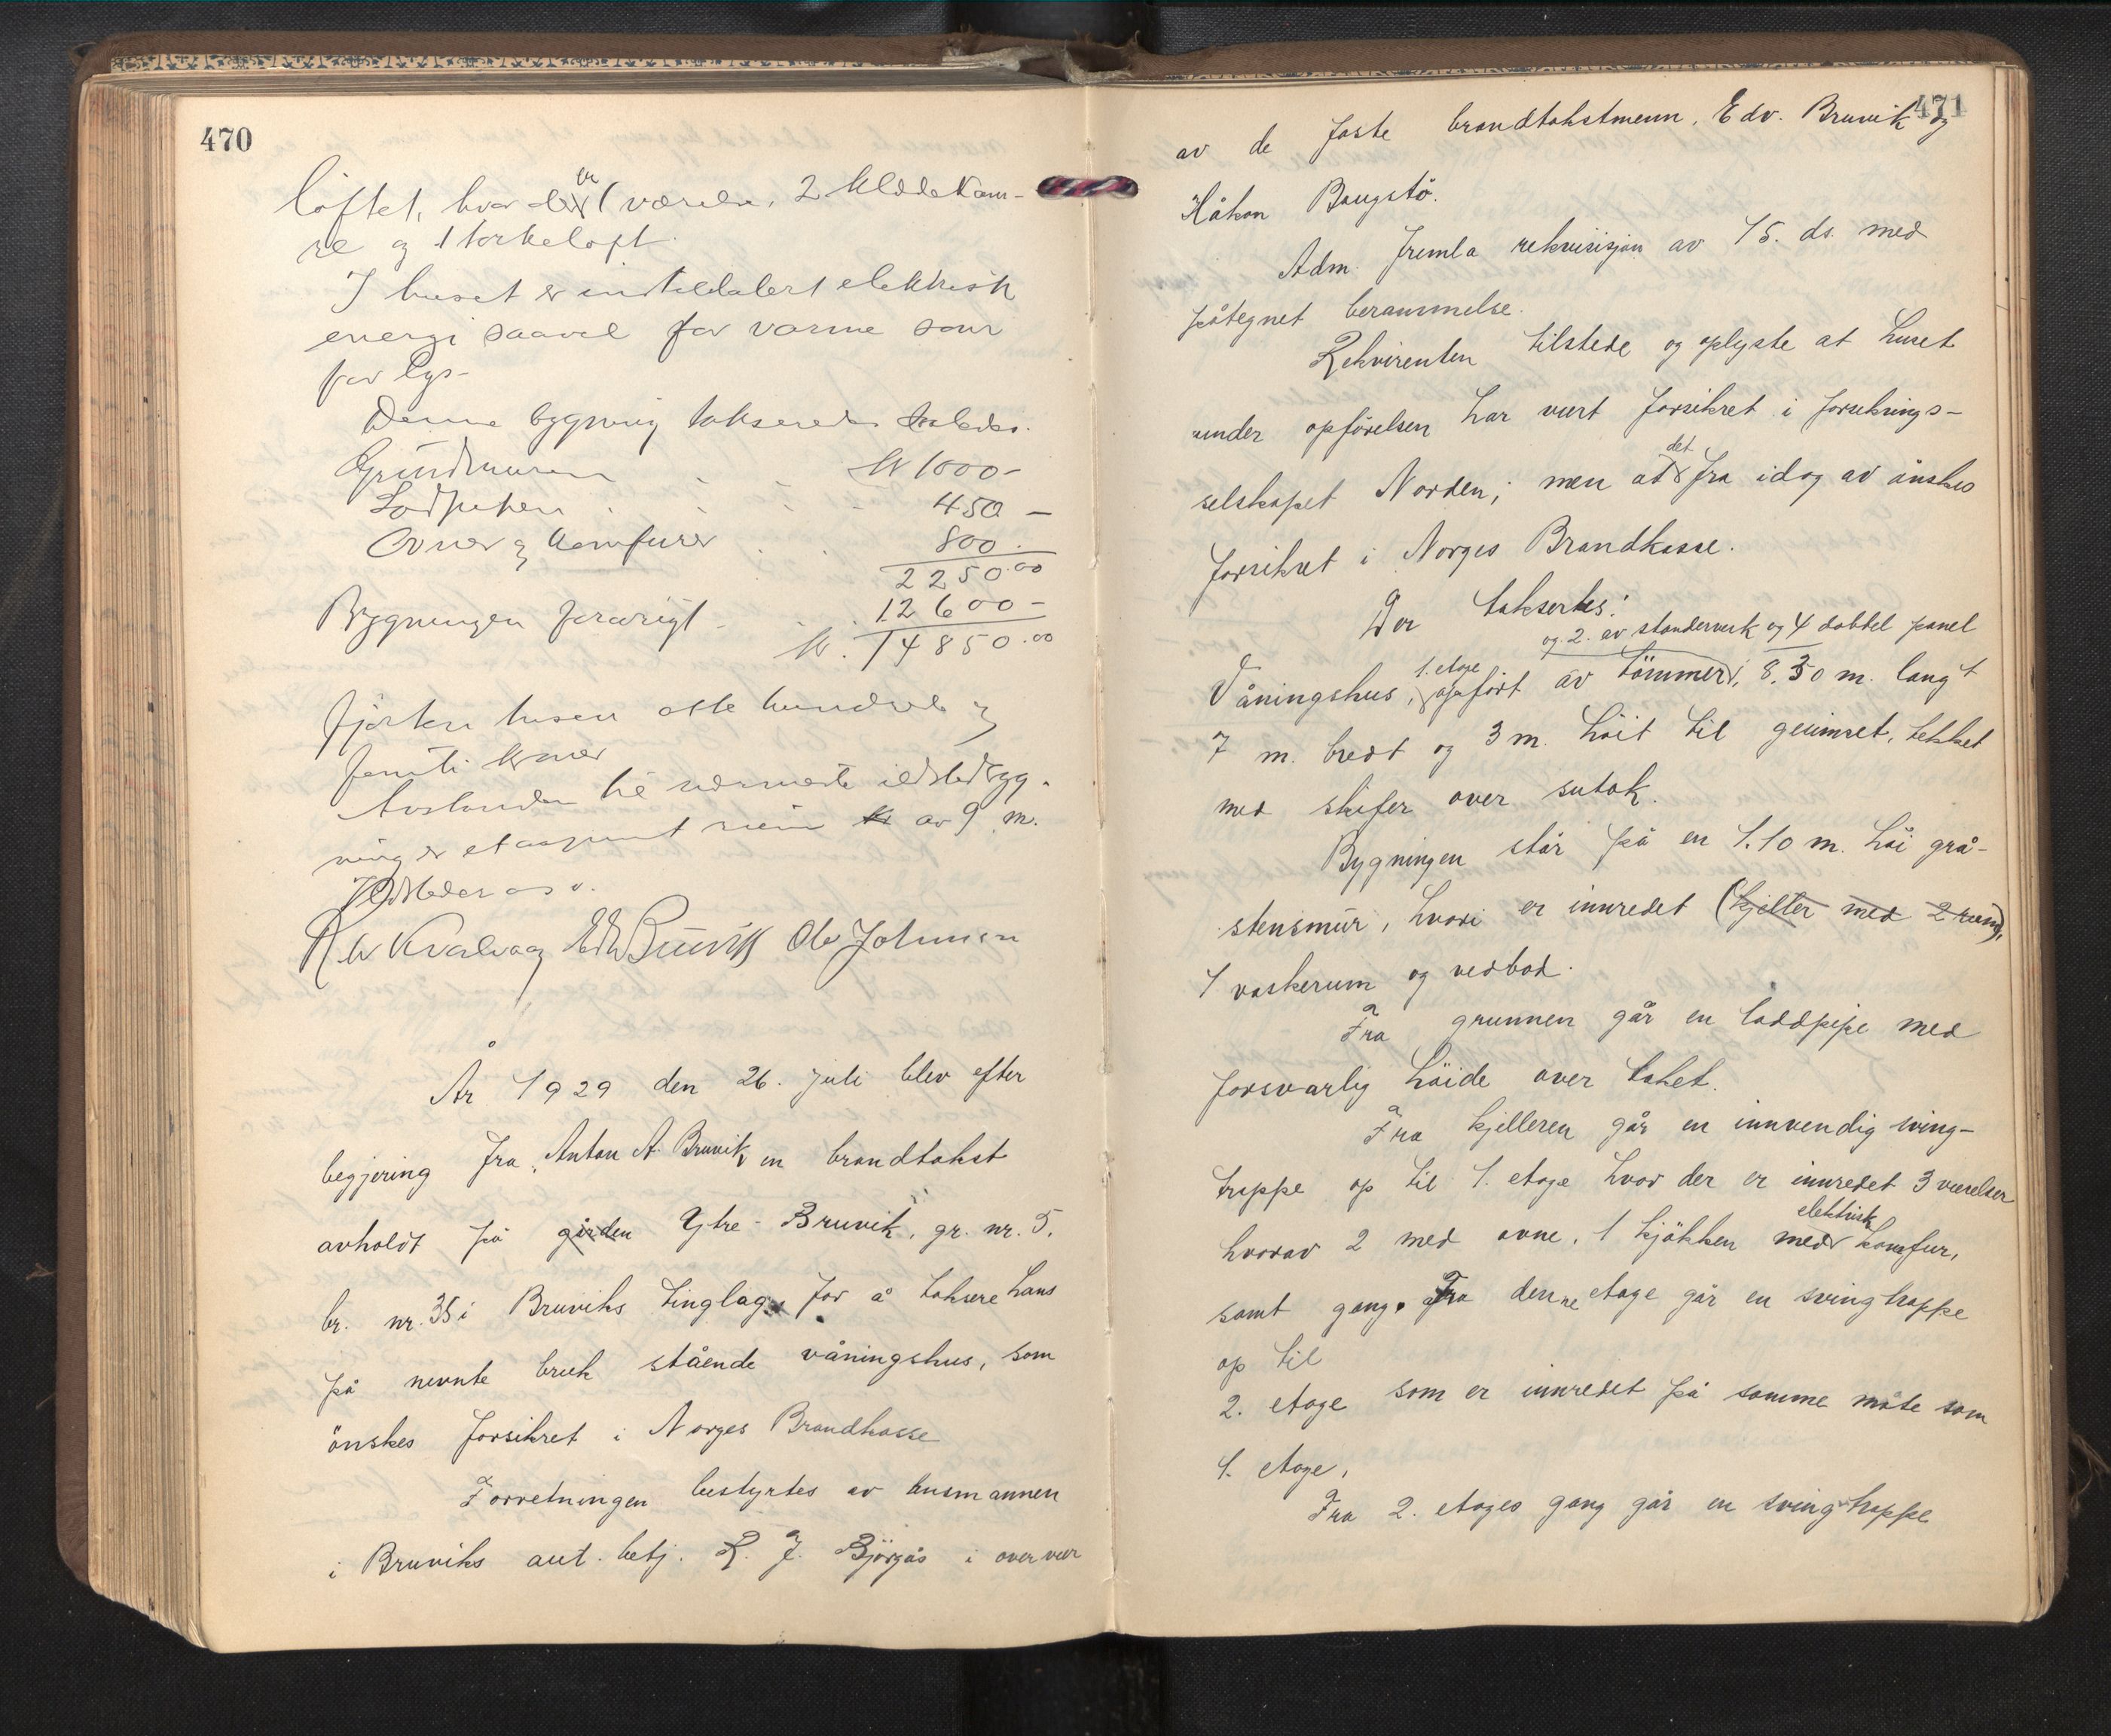 470
loftet, hvor der er 1 værelse, 2 klædekam-
re og 1 tørkeloft.
I huset er installert elektrisk
energi saavel for varme som
for lys-
Denne bygning takseres saaledes.
Grundmuren kr 1000-
Lodpipen 450 -
Ovner og komfurer 800.
2250.00
Bygningen forøvrigt 12600-
kr. 14850.00
fjorten tusen otte hundrede og
femti kroner
Avstanden til nærmeste ildstedsbyg-
ning er av 9 m.
Ildsteder
Kvalvaag Edv Bruvik Ole Johnsen
År 1929 den 26. juli blev efter
begjering fra Anton A. Bruvik en brandtakst
avholdt på gården Ytre-Bruvik, gr. nr. 5.
br. nr. 35 i Bruviks tinglag, for å taksere hans
på nevnte bruk stående våningshus, som
önskes forsikret i Norges Brandkasse
Forretningen bestyrtes av lensmannen
i Bruviks aut. betj. R. J. Björgås i overvær
471
av de faste brandtakstmenn, Edv. Bruvik og
Håkon Baugstö.
Adm. fremla rekvisisjon av 15. ds. med
påtegnet berammelse.
Rekvirenten tilstede og oplyste at huset
under opförelsen har vært forsikret i forsikrings-
det
selskapet Norden; men at fra idag av önskes
forsikret i Norges Brandkasse.
Der takseres:
og 2. av standerverk og 4 dobbel panel
1. etage
Våningshus, opfört av tömmer, 8,30 m. langt
7 m. bredt og 3 m. höit til gesimset, tekket
med skifer over sutak.
Bygningen står på en 1.10 m. höi grå-
stensmur, hvori er innredet (kjeller med 2 rum),
1 vaskerum og vedbod.
Fra grunnen går en loddpipe med
forsvarlig höide over taket.
Fra kjelleren går en innvendig sving-
trappe op til 1. etage hvor der er innredet 3 værelser
elektrisk
hvorav 2 med ovne, 1 kjökken med komfur,
samt gang. Fra denne etage går en svingtrappe
op til
2. etage som er innredet på samme måte som
1. etage,
Fra 2. etages gang går en svingtrappe